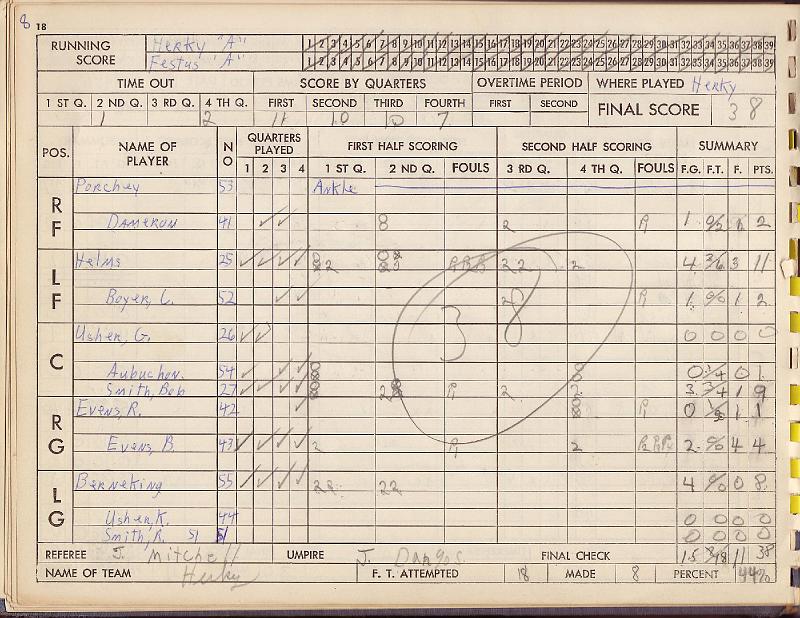 8 18
RUNNING SCORE
Herky "A" 1 2 3 4 5 6 7 8 9 10 11 12 13 14 15 16 17 18 19 20 21 22 23 24 25 26 27 28 29 30 31 32 33 34 35 36 37 38 39
Festus "A" 1 2 3 4 5 6 7 8 9 10 11 12 13 14 15 16 17 18 19 20 21 22 23 24 25 26 27 28 29 30 31 32 33 34 35 36 37 38 39
TIME OUT SCORE BY QUARTERS OVERTIME PERIOD WHERE PLAYED Herky
1 ST Q. 2 ND Q. 3 RD Q. 4 TH Q. FIRST SECOND THIRD FOURTH FIRST SECOND FINAL SCORE 38
1 2 11 10 10 7
POS. NAME OF PLAYER NO QUARTERS PLAYED FIRST HALF SCORING SECOND HALF SCORING SUMMARY
1 2 3 4 1 ST Q. 2 ND Q. FOULS 3 RD Q. 4 TH Q. FOULS F.G. F.T. F. PTS.
RF Porchey 53 Ankle
Dameron 41 8 2 P1 1 0/2 2
LF Helms 25 2 2 2 2 2 4 3/6 3 11
Boyer, L. 52 2 P1 1 0/0 1 2
C Usher, G. 26 0 0 0 0
Aubuchon. 54 0 1/4 0 1
Smith, Bob 27 2 P1 2 3 3/4 1 9
RG Evens, R. 42 P1 0 1 1
Evens, B. 43 2 P1 2 2 0/0 4 4
LG Berneking 55 22 22 4 0/0 0 8
Usher, K. 44 0 0 0 0
Smith, R. 51 51 0 0 0 0
38
REFEREE J. Mitchell UMPIRE J. Dangos FINAL CHECK 15 8/18 11 38
NAME OF TEAM Herky F. T. ATTEMPTED 18 MADE 8 PERCENT 44%